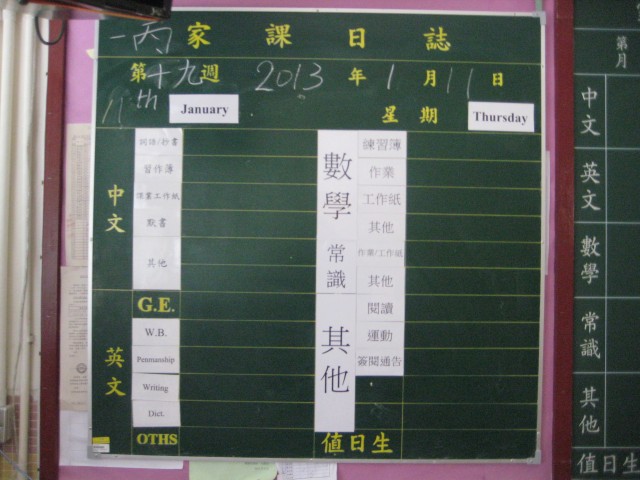 一丙 家課日誌
第十九週 2013 年 1 月 11 日
11th January 星期 Thursday
中文
習作簿
默書
其他
英文
G.E.
W.B.
Penmanship
Writing
Dict.
OTHS
數學
練習簿
作業
工作紙
其他
常識
作業/工作紙
其他
其他
閱讀
運動
簽閱通告
值日生
第
月
中文
英文
數學
常識
其他
值日生